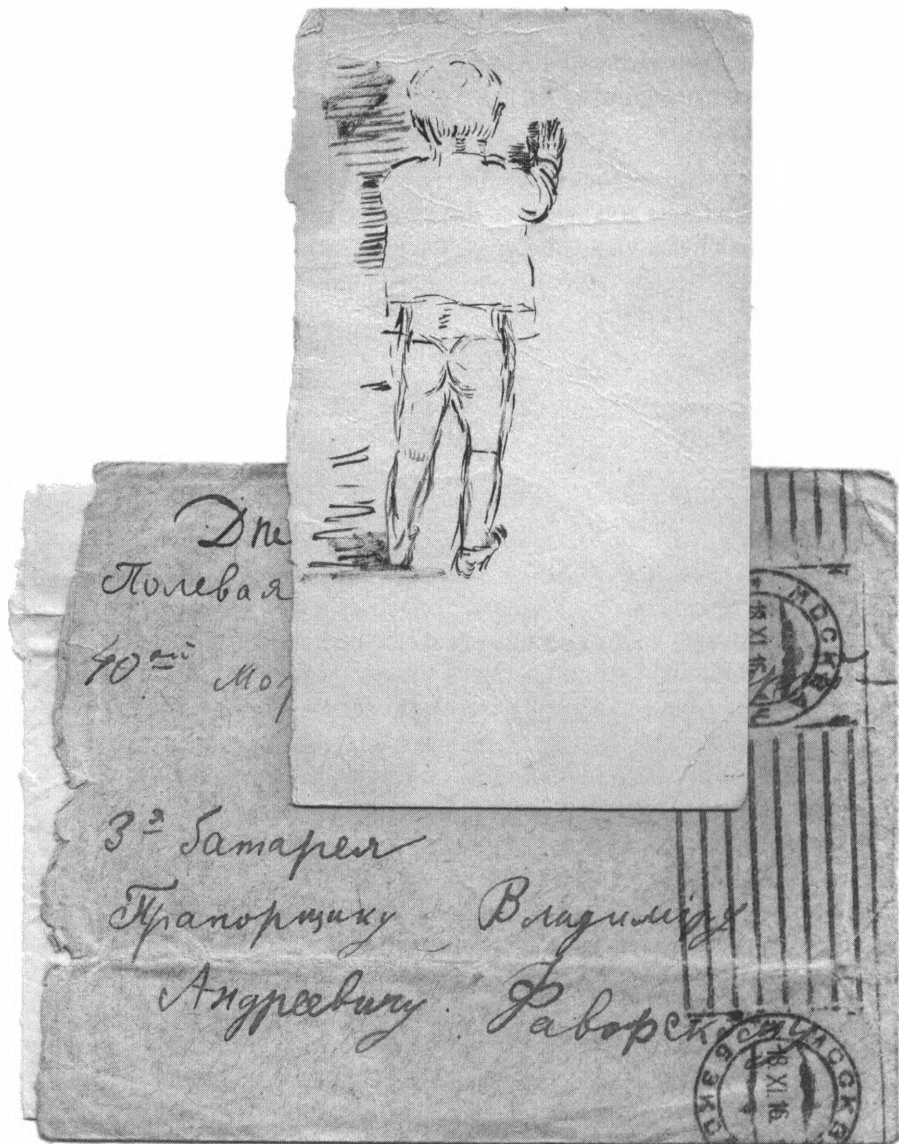 Дпе
Полевая
40ой Мор
3я батарея
Прапорщику Владиміру
Андреевичу Фаворскому
МОСКВА
18 XI 16
МОСКВА
18 XI 16